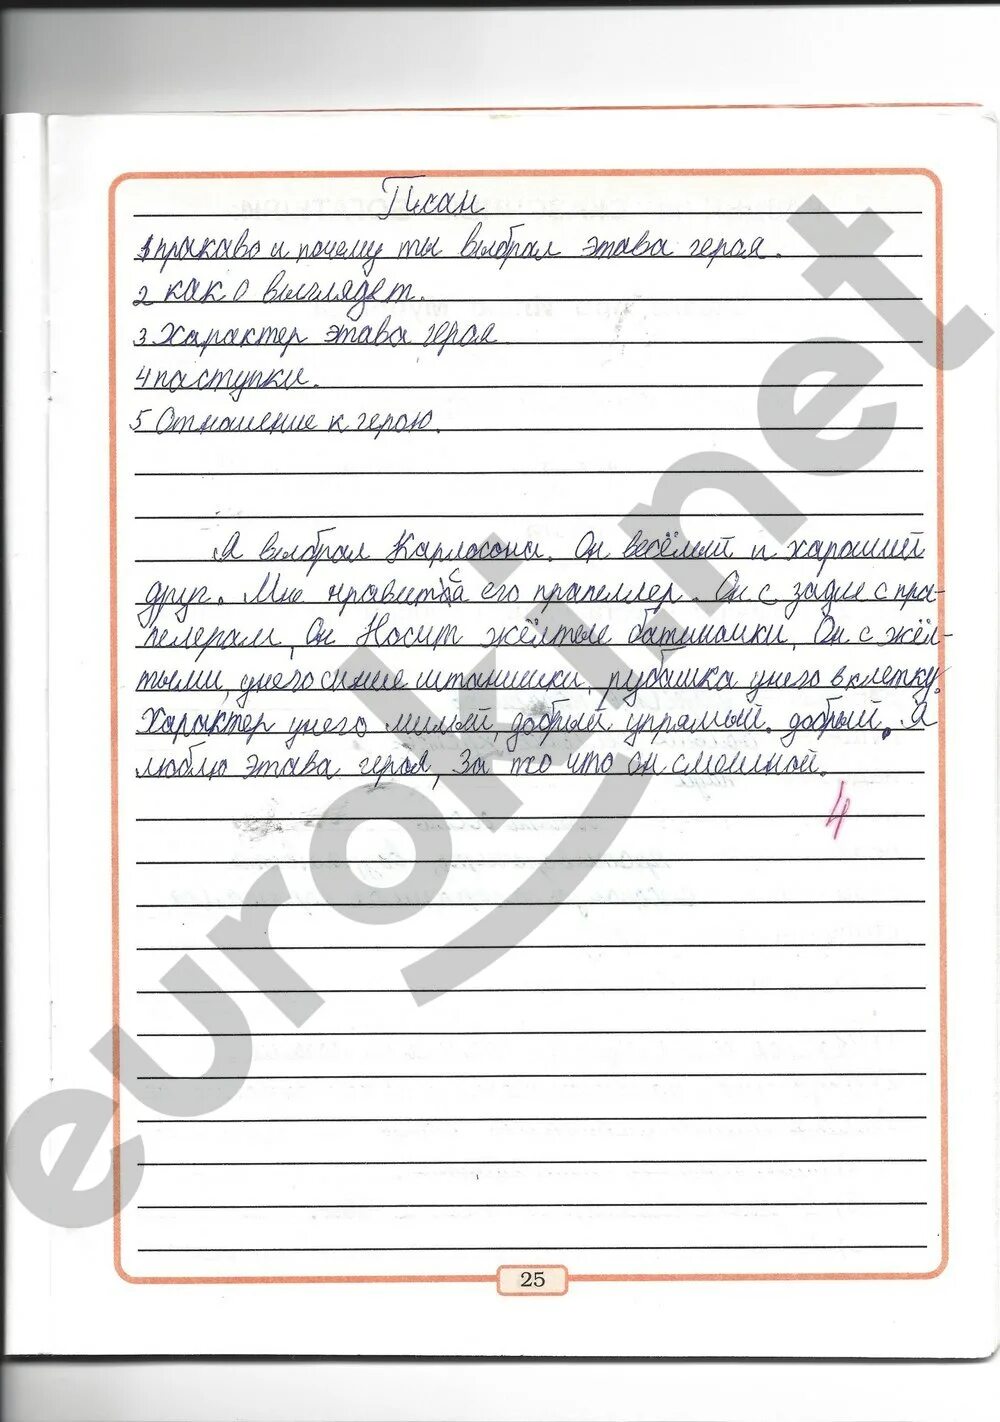 Плсан
1 пракаво и почему ты выбрал этава героя.
2 как о выглядет.
3 Характер этава героя
4 паступки.
5 Отношение к герою.
Я выбрал Карлосона. Он весёлый и хароший
друг. Мне нравитса его прапеллер. Он с задие с пра-
пелерам, Он Носит жёлтые батиночки, Он с жёл-
тыми, унего синие штанишки, рубашка унего в клетку.
Характер унего милый, добрый упрямый. добрый. Я
люблю этава героя, За то что он смешной.
4
25
eurokinet